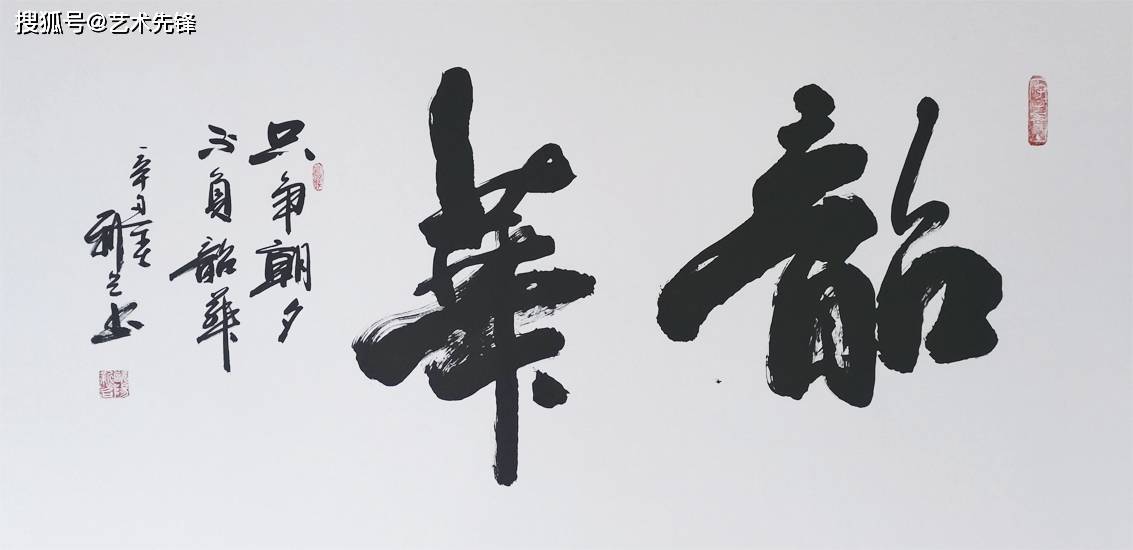 搜狐号@艺术先锋
韶華
只争朝夕
不負韶華
辛丑
书